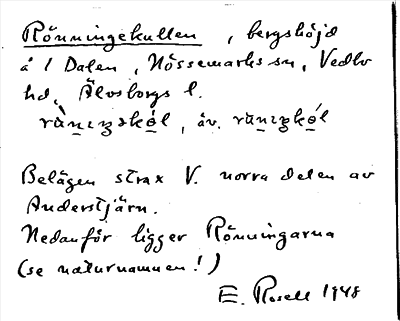 Rönningekullen, bergshöjd
å 1 Dalen, Nössemarks sn, Vedbo
hd, Älvsborgs l.
av.
Belägen strax V. norra delen av
Anderstjärn.
Nedanför ligger Rönningarna
(se naturnamnen!)
E. Rosell 1948